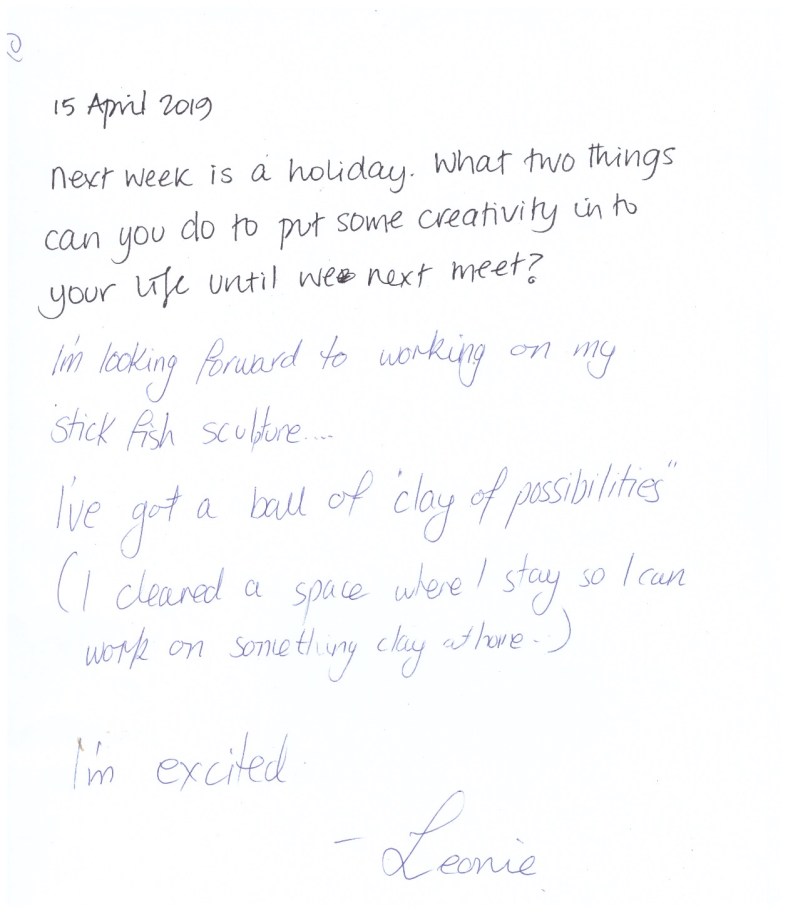 15 April 2019
Next week is a holiday. What two things
can you do to put some creativity in to
your life until we next meet?
I'm looking forward to working on my
stick fish sculpture....
I've got a ball of 'clay of possibilities"
(I cleared a space where I stay so I can
work on something clay at home..)
I'm excited
- Leonie